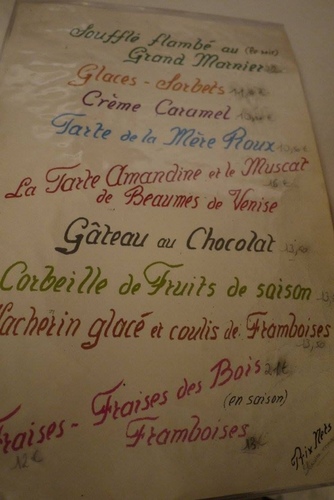 Soufflé flambé au (le soir)
Grand Marnier
Glaces - Sorbets
Crème Caramel
Tarte de la Mère Roux
La Tarte Amandine et le Muscat
de Beaumes de Venise
Gâteau au Chocolat
Corbeille de Fruits de saison
Vacherin glacé et coulis de Framboises
Fraises - Fraises des Bois
(en saison)
Framboises
12 €
Prix Nets